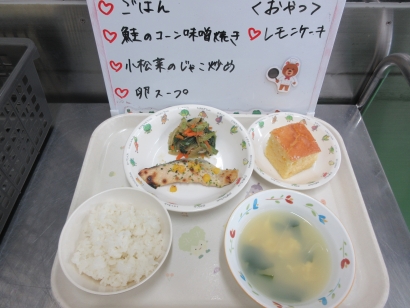 ♡ごはん 〈おやつ〉
♡鮭のコーン味噌焼き ♡レモンケーキ
♡小松菜のじゃこ炒め
♡卵スープ